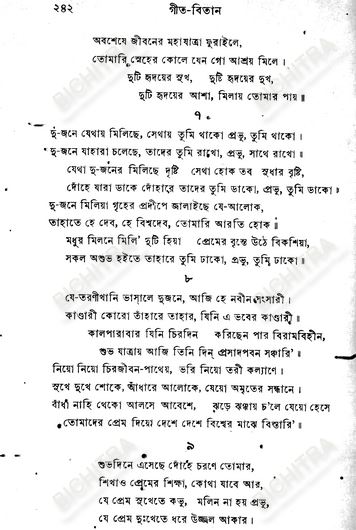 ২৪২ গীত-বিতান
অবশেষে জীবনের মহাযাত্রা ফুরাইলে,
তোমারি স্নেহের কোলে যেন গো আশ্রয় মিলে।
দুটি হৃদয়ের সুখ, দুটি হৃদয়ের দুখ,
দুটি হৃদয়ের আশা, মিলায় তোমার পায়॥
৭
দু-জনে যেথায় মিলিছে, সেথায় তুমি থাকো প্রভু, তুমি থাকো।
দু-জনে যাহারা চলেছে, তাদের তুমি রাখো, প্রভু, সাথে রাখো।
যেথা দু-জনের মিলিছে দৃষ্টি সেথা হোক তব সুধার বৃষ্টি,
দোঁহে যারা ডাকে দোঁহারে তাদের তুমি ডাকো, প্রভু, তুমি ডাকো॥
দু-জনে মিলিয়া গৃহের প্রদীপে জালাইছে যে-আলোক,
তাহাতে হে দেব, হে বিশ্বদেব, তোমারি আরতি হোক॥
মধুর মিলনে মিলি' দুটি হিয়া প্রেমের বৃন্তে উঠে বিকশিয়া,
সকল অশুভ হইতে তাহারে তুমি ঢাকো, প্রভু, তুমি ঢাকো॥
৮
যে-তরণীখানি ভাসালে দুজনে, আজি হে নবীন সংসারী।
কাণ্ডারী কোরো তাঁহারে তাহার, যিনি এ ভবের কাণ্ডারী॥
কালপারাবার যিনি চিরদিন করিছেন পার বিরামবিহীন,
শুভ যাত্রায় আজি তিনি দিন্ প্রসাদপবন সঞ্চারি'॥
নিয়ো নিয়ো চিরজীবন-পাথেয়, ভরি নিয়ো তরী কল্যাণে।
সুখে দুখে শোকে, আঁধারে আলোকে, যেয়ো অমৃতের সন্ধানে।
বাঁধা নাহি থেকো আলসে আবেশে, ঝড়ে ঝঞ্ঝায় চ'লে যেয়ো হেসে
তোমাদের প্রেম দিয়ো দেশে দেশে বিশ্বের মাঝে বিস্তারি'॥
৯
শুভদিনে এসেছে দোঁহে চরণে তোমার,
শিখাও প্রেমের শিক্ষা, কোথা যাবে আর,
যে প্রেম সুখেতে কভু, মলিন না হয় প্রভু,
যে প্রেম দুঃখেতে ধরে উজ্জল আকার।
BICHITRA